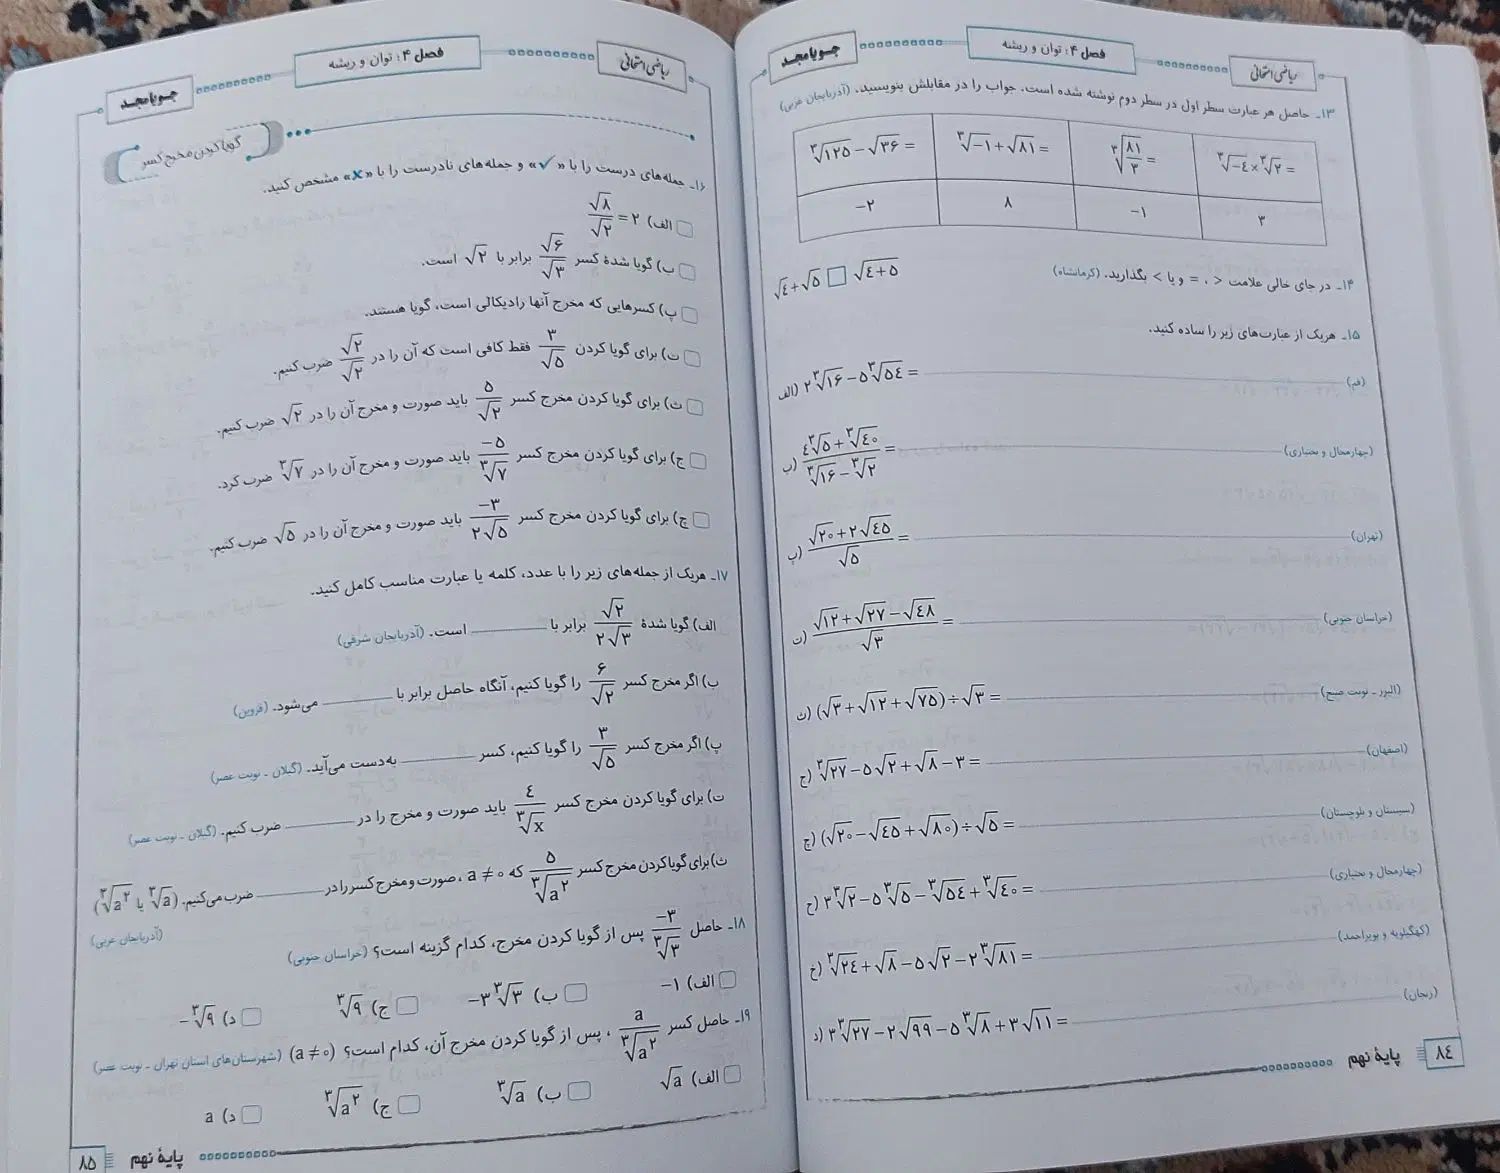 ریاضی امتحانی
فصل ۴: توان و ریشه
جـویا مجـد
۱۳ـ حاصل هر عبارت سطر اول در سطر دوم نوشته شده است. جواب را در مقابلش بنویسید. (آذربایجان غربی)
∛۱۲۵ − √۳۶ = | ∛−۱ + √۸۱ = | ∛(۸۱/۳) = | ∛−٤ × ∛۲ =
−۲ | ۸ | −۱ | ۳
۱۴ـ در جای خالی علامت < ، = و یا > بگذارید. (کرمانشاه) √٤ + √۵ □ √(٤+۵)
۱۵ـ هریک از عبارت‌های زیر را ساده کنید.
الف) ۲∛۱۶ − ۵∛۵٤ = (قم)
ب) (٤∛۵ + ∛٤۰)/(∛۱۶ − ∛۲) = (چهارمحال و بختیاری)
پ) (√۲۰ + ۲√٤۵)/√۵ = (تهران)
ت) (√۱۲ + √۲۷ − √٤۸)/√۳ = (خراسان جنوبی)
ث) (√۳ + √۱۲ + √۷۵) ÷ √۳ = (البرز ـ نوبت صبح)
ج) ∛۲۷ − ۵√۲ + √۸ − ۳ = (اصفهان)
چ) (√۲۰ − √٤۵ + √۸۰) ÷ √۵ = (سیستان و بلوچستان)
ح) ۳∛۲ − ۵∛۵ − ∛۵٤ + ∛٤۰ = (چهارمحال و بختیاری)
خ) ∛۲٤ + √۸ − ۵√۲ − ۲∛۸۱ = (کهگیلویه و بویراحمد)
د) ۳∛۲۷ − ۲√۹۹ − ۵∛۸ + ۳√۱۱ = (زنجان)
۸٤ پایهٔ نهم
ریاضی امتحانی
فصل ۴: توان و ریشه
جـویا مجـد
گویا کردن مخرج کسر
۱۶ـ جمله‌های درست را با «✓» و جمله‌های نادرست را با «×» مشخص کنید.
□ الف) √۸/√۲ = ۲
□ ب) گویا شدهٔ کسر √۶/√۳ برابر با √۲ است.
□ پ) کسرهایی که مخرج آنها رادیکالی است، گویا هستند.
□ ت) برای گویا کردن ۳/√۵ فقط کافی است که آن را در √۲/√۲ ضرب کنیم.
□ ث) برای گویا کردن مخرج کسر ۵/√۲ باید صورت و مخرج آن را در √۲ ضرب کنیم.
□ ج) برای گویا کردن مخرج کسر −۵/∛۷ باید صورت و مخرج آن را در ∛۷ ضرب کرد.
□ چ) برای گویا کردن مخرج کسر −۳/۲√۵ باید صورت و مخرج آن را در √۵ ضرب کنیم.
۱۷ـ هریک از جمله‌های زیر را با عدد، کلمه یا عبارت مناسب کامل کنید.
الف) گویا شدهٔ √۲/۲√۳ برابر با ـــــــ است. (آذربایجان شرقی)
ب) اگر مخرج کسر ۶/√۲ را گویا کنیم، آنگاه حاصل برابر با ـــــــ می‌شود. (قزوین)
پ) اگر مخرج کسر ۳/√۵ را گویا کنیم، کسر ـــــــ به‌دست می‌آید. (گیلان ـ نوبت عصر)
ت) برای گویا کردن مخرج کسر ٤/∛x باید صورت و مخرج را در ـــــــ ضرب کنیم. (گیلان ـ نوبت عصر)
ث) برای گویا کردن مخرج کسر ۵/∛a² که a ≠ ۰، صورت و مخرج کسر را در ـــــــ ضرب می‌کنیم. (∛a یا ∛a²)
(آذربایجان غربی)
۱۸ـ حاصل −۳/∛۳ پس از گویا کردن مخرج، کدام گزینه است؟ (خراسان جنوبی)
□ الف) −۱ □ ب) −۳∛۳ □ ج) ∛۹ □ د) −∛۹
۱۹ـ حاصل کسر a/∛a² ، پس از گویا کردن مخرج آن، کدام است؟ (a ≠ ۰) (شهرستان‌های استان تهران ـ نوبت عصر)
□ الف) √a □ ب) ∛a □ ج) ∛a² □ د) a
پایهٔ نهم ۸۵